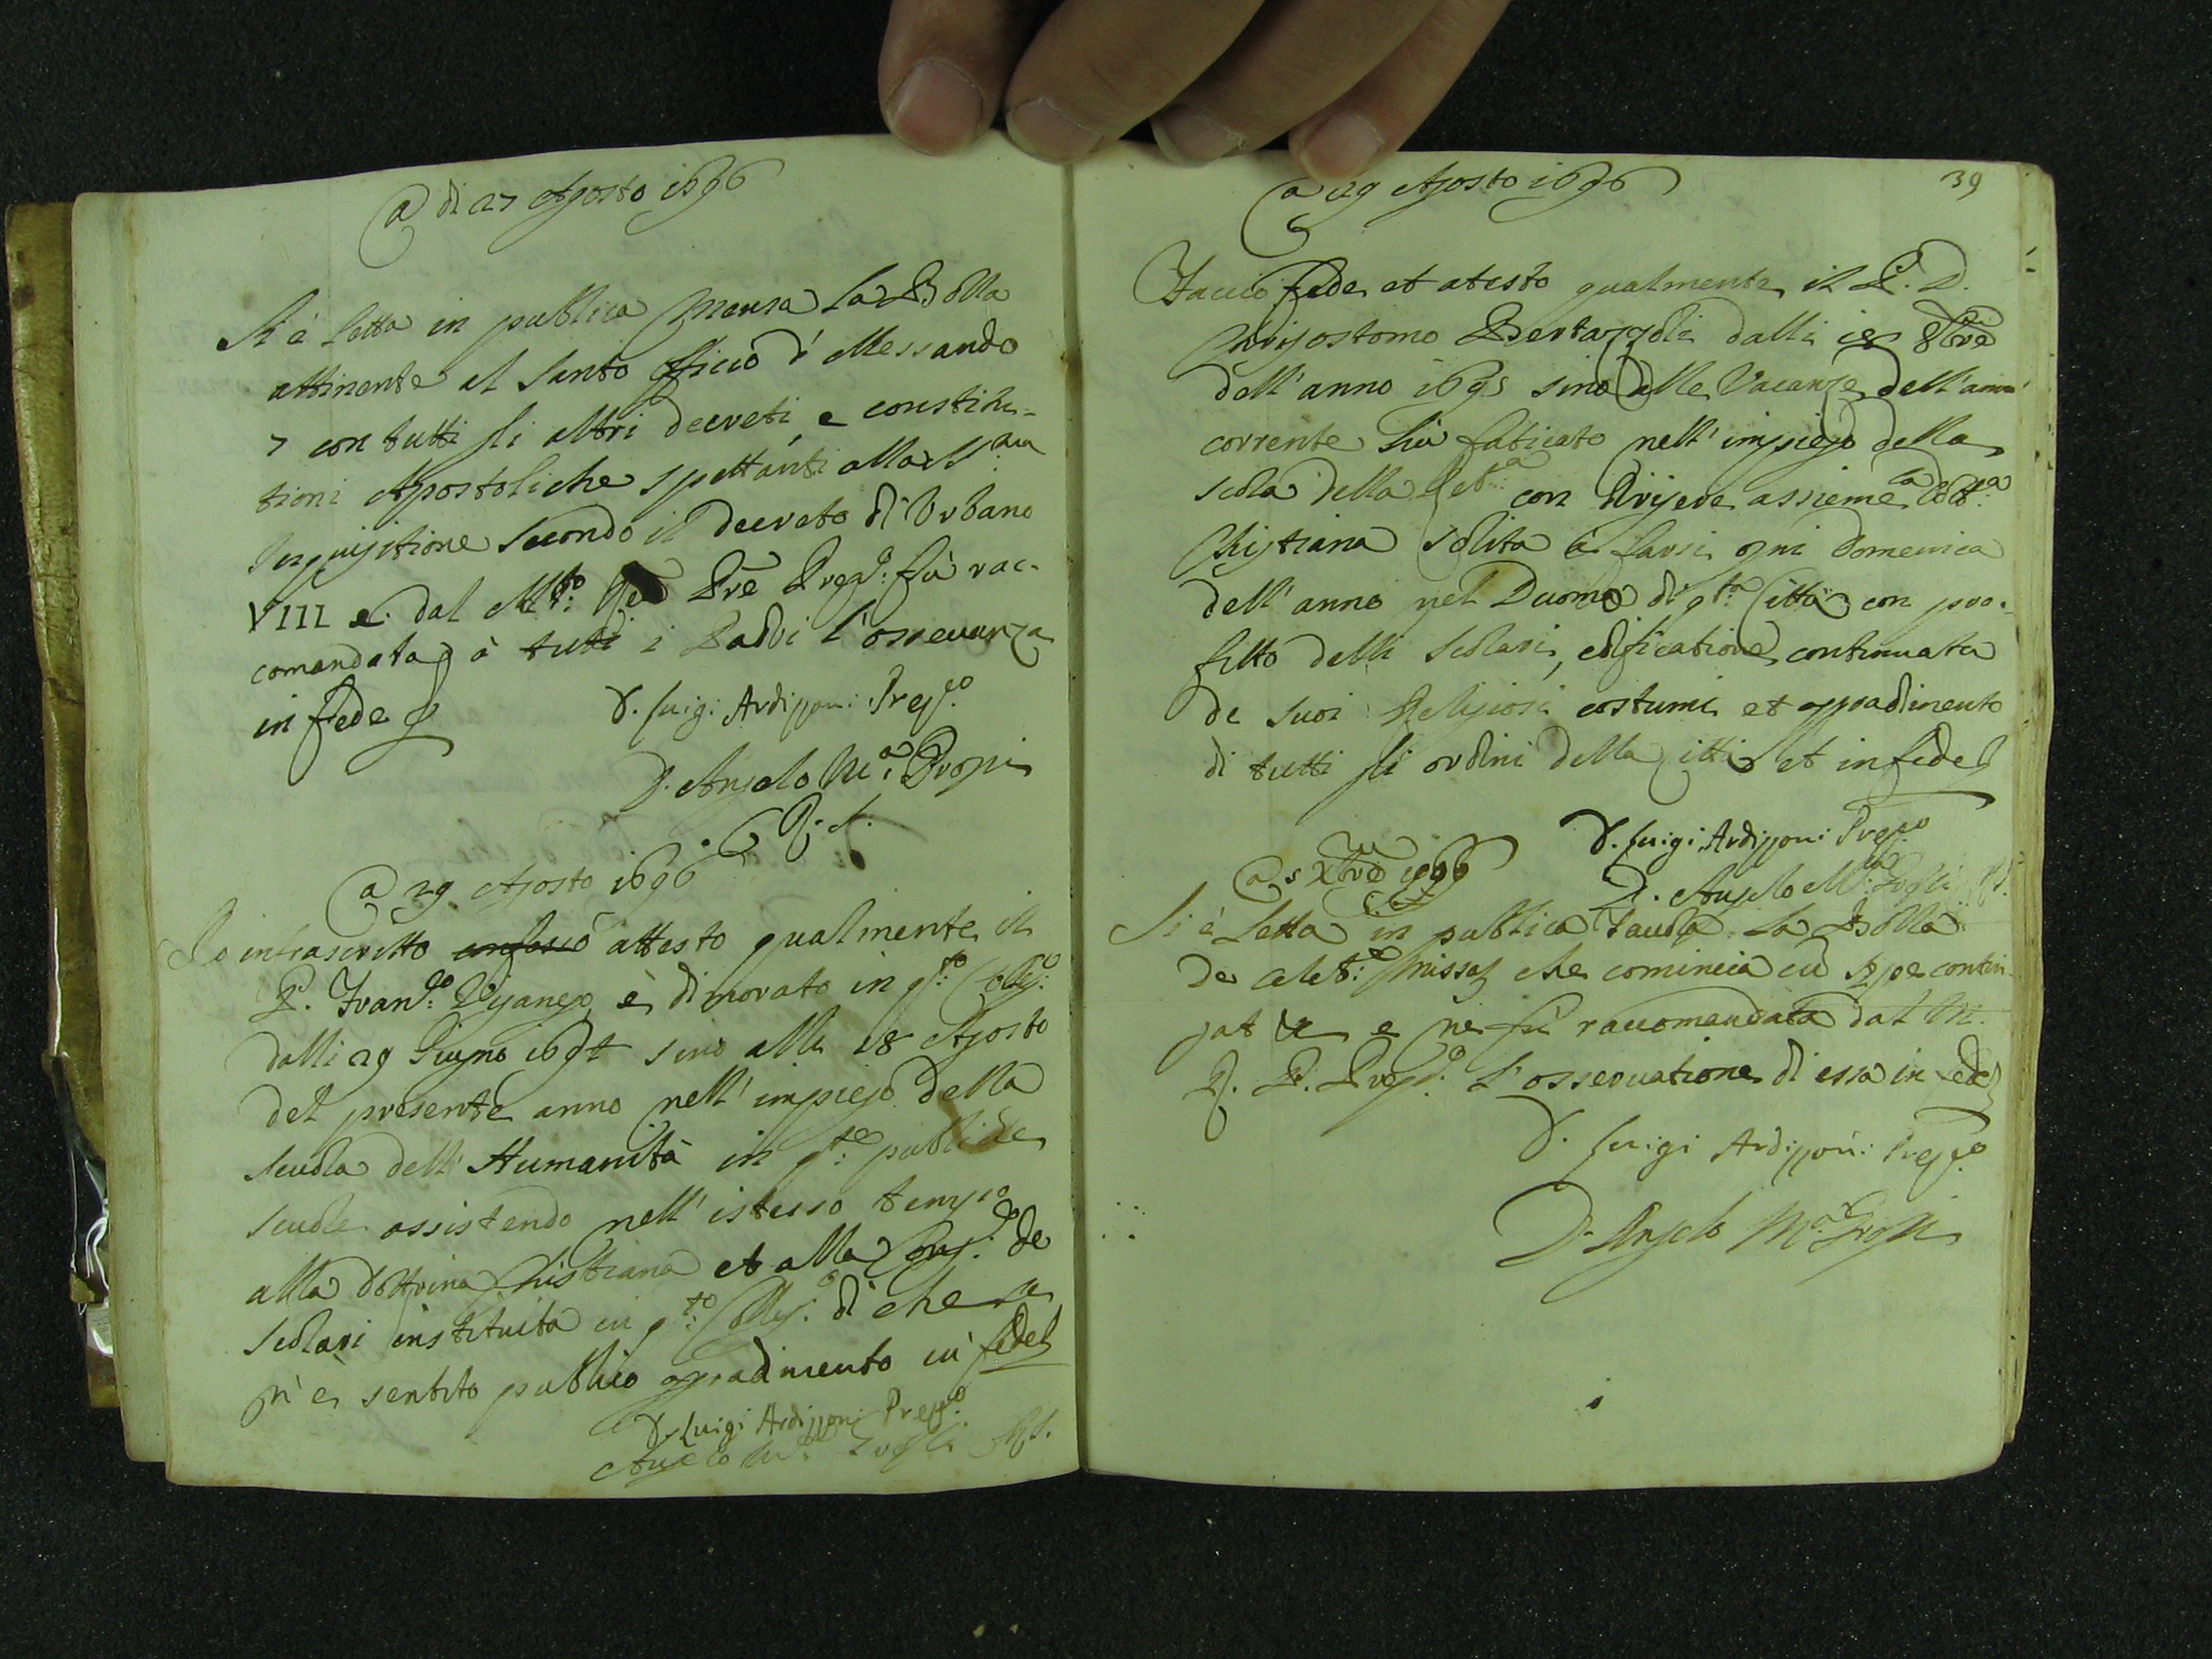 a di 27 Agosto 1696
Si è letta in publica Mensa la Bolla
attinente al Santo officio d'Alessandro
7 con tutti gli altri decreti, e constitu-
tioni Apostoliche spettanti alla S.
Inquisitione secondo il decreto di Urbano
VIII e dal M.to Re Pre Prep.to fù rac-
comandata à tutti i Padri l'osseruanza
in fede
D. Luigi Ardizzoni Prep.to
D. Angelo M.a
C. R. S.
a 29 Agosto 1696
Io infrascritto attesto qualmente il
P. Fran.co è dimorato in q.to Colleg.o
dalli 29 Giugno sino alli 18 Agosto
del presente anno nell'impiego della
scuola dell'Humanità in q.te publiche
scuole assistendo nell'istesso tempo
alla dottrina Christiana et alla Cong.e de
scolari instituita in q.to Colleg.o di che se
n'è sentito publico aggradimento in fede
D. Luigi Ardizzoni Prep.to
Angelo M.a C.R.S.
39
a 29 Agosto 1696
Faccio fede et atesto qualmente il P. D.
Chrisostomo Bertazzoli dalli 8bre
dell'anno 1695 sino alle Vacanze dell'anno
corrente hà faticato nell'impiego della
scola della Ret.a con dirigere assieme la Dott.a
Christiana solita à farsi ogni domenica
dell'anno nel Duomo di q.ta Città con pro-
fitto delli scolari, edificatione continuata
de suoi Religiosi costumi et aggradimento
di tutti gli ordini della Città et in fede
D. Luigi Ardizzoni Prep.to
D. Angelo M.a
a 5 Xbre 1696
Si è letta in publica Tauola la Bolla
de celeb.e missa che comincia cũ sepe contin-
gat e ne fù raccomandata dal M.
R. P. Prep.to l'osseruatione di essa in fede
D. Luigi Ardizzoni Prep.to
D. Angelo M.a